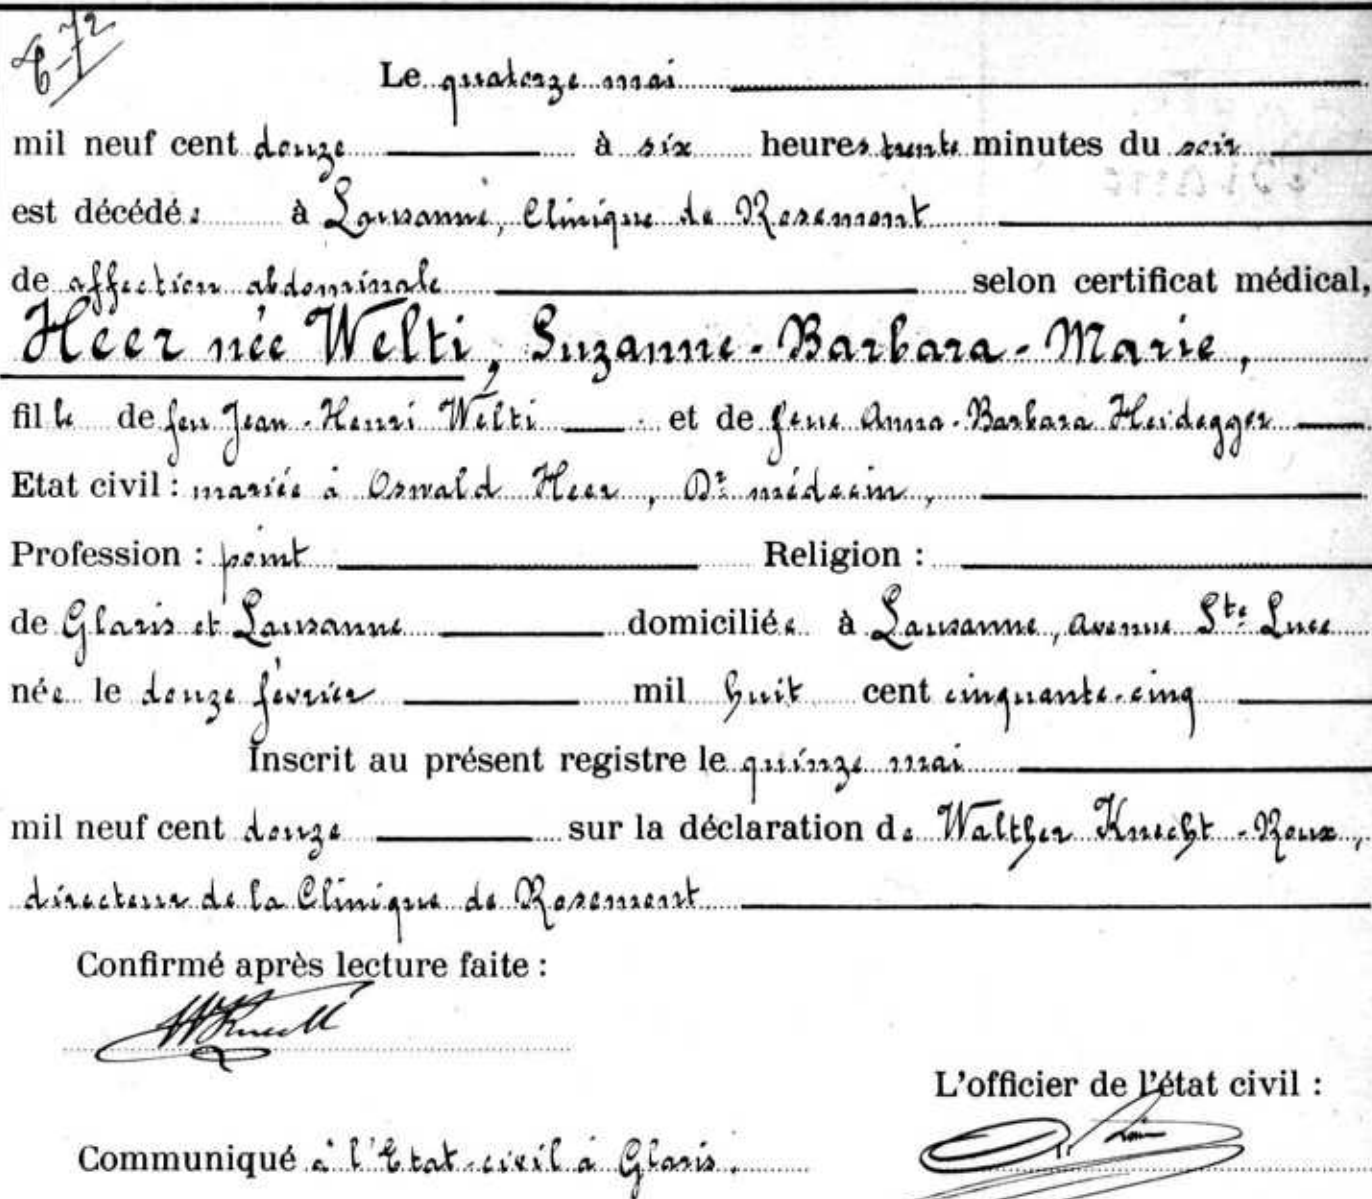 72
Le quatorze mai
mil neuf cent douze à six heures trente minutes du soir
est décédée à Lausanne, Clinique de Rosemont
de affection abdominale selon certificat médical,
Heer née Welti, Suzanne-Barbara-Marie,
fille de feu Jean-Henri Welti et de feue Anna-Barbara Heidegger
Etat civil : mariée à Oswald Heer, Dr médecin,
Profession : point Religion :
de Glaris et Lausanne domiciliée à Lausanne, avenue Ste Luce
née le douze février mil huit cent cinquante-cinq
Inscrit au présent registre le quinze mai
mil neuf cent douze sur la déclaration de Walther Knecht-Roux,
directeur de la Clinique de Rosemont
Confirmé après lecture faite :
WKnecht
L'officier de l'état civil :
Communiqué à l'Etat-civil à Glaris.